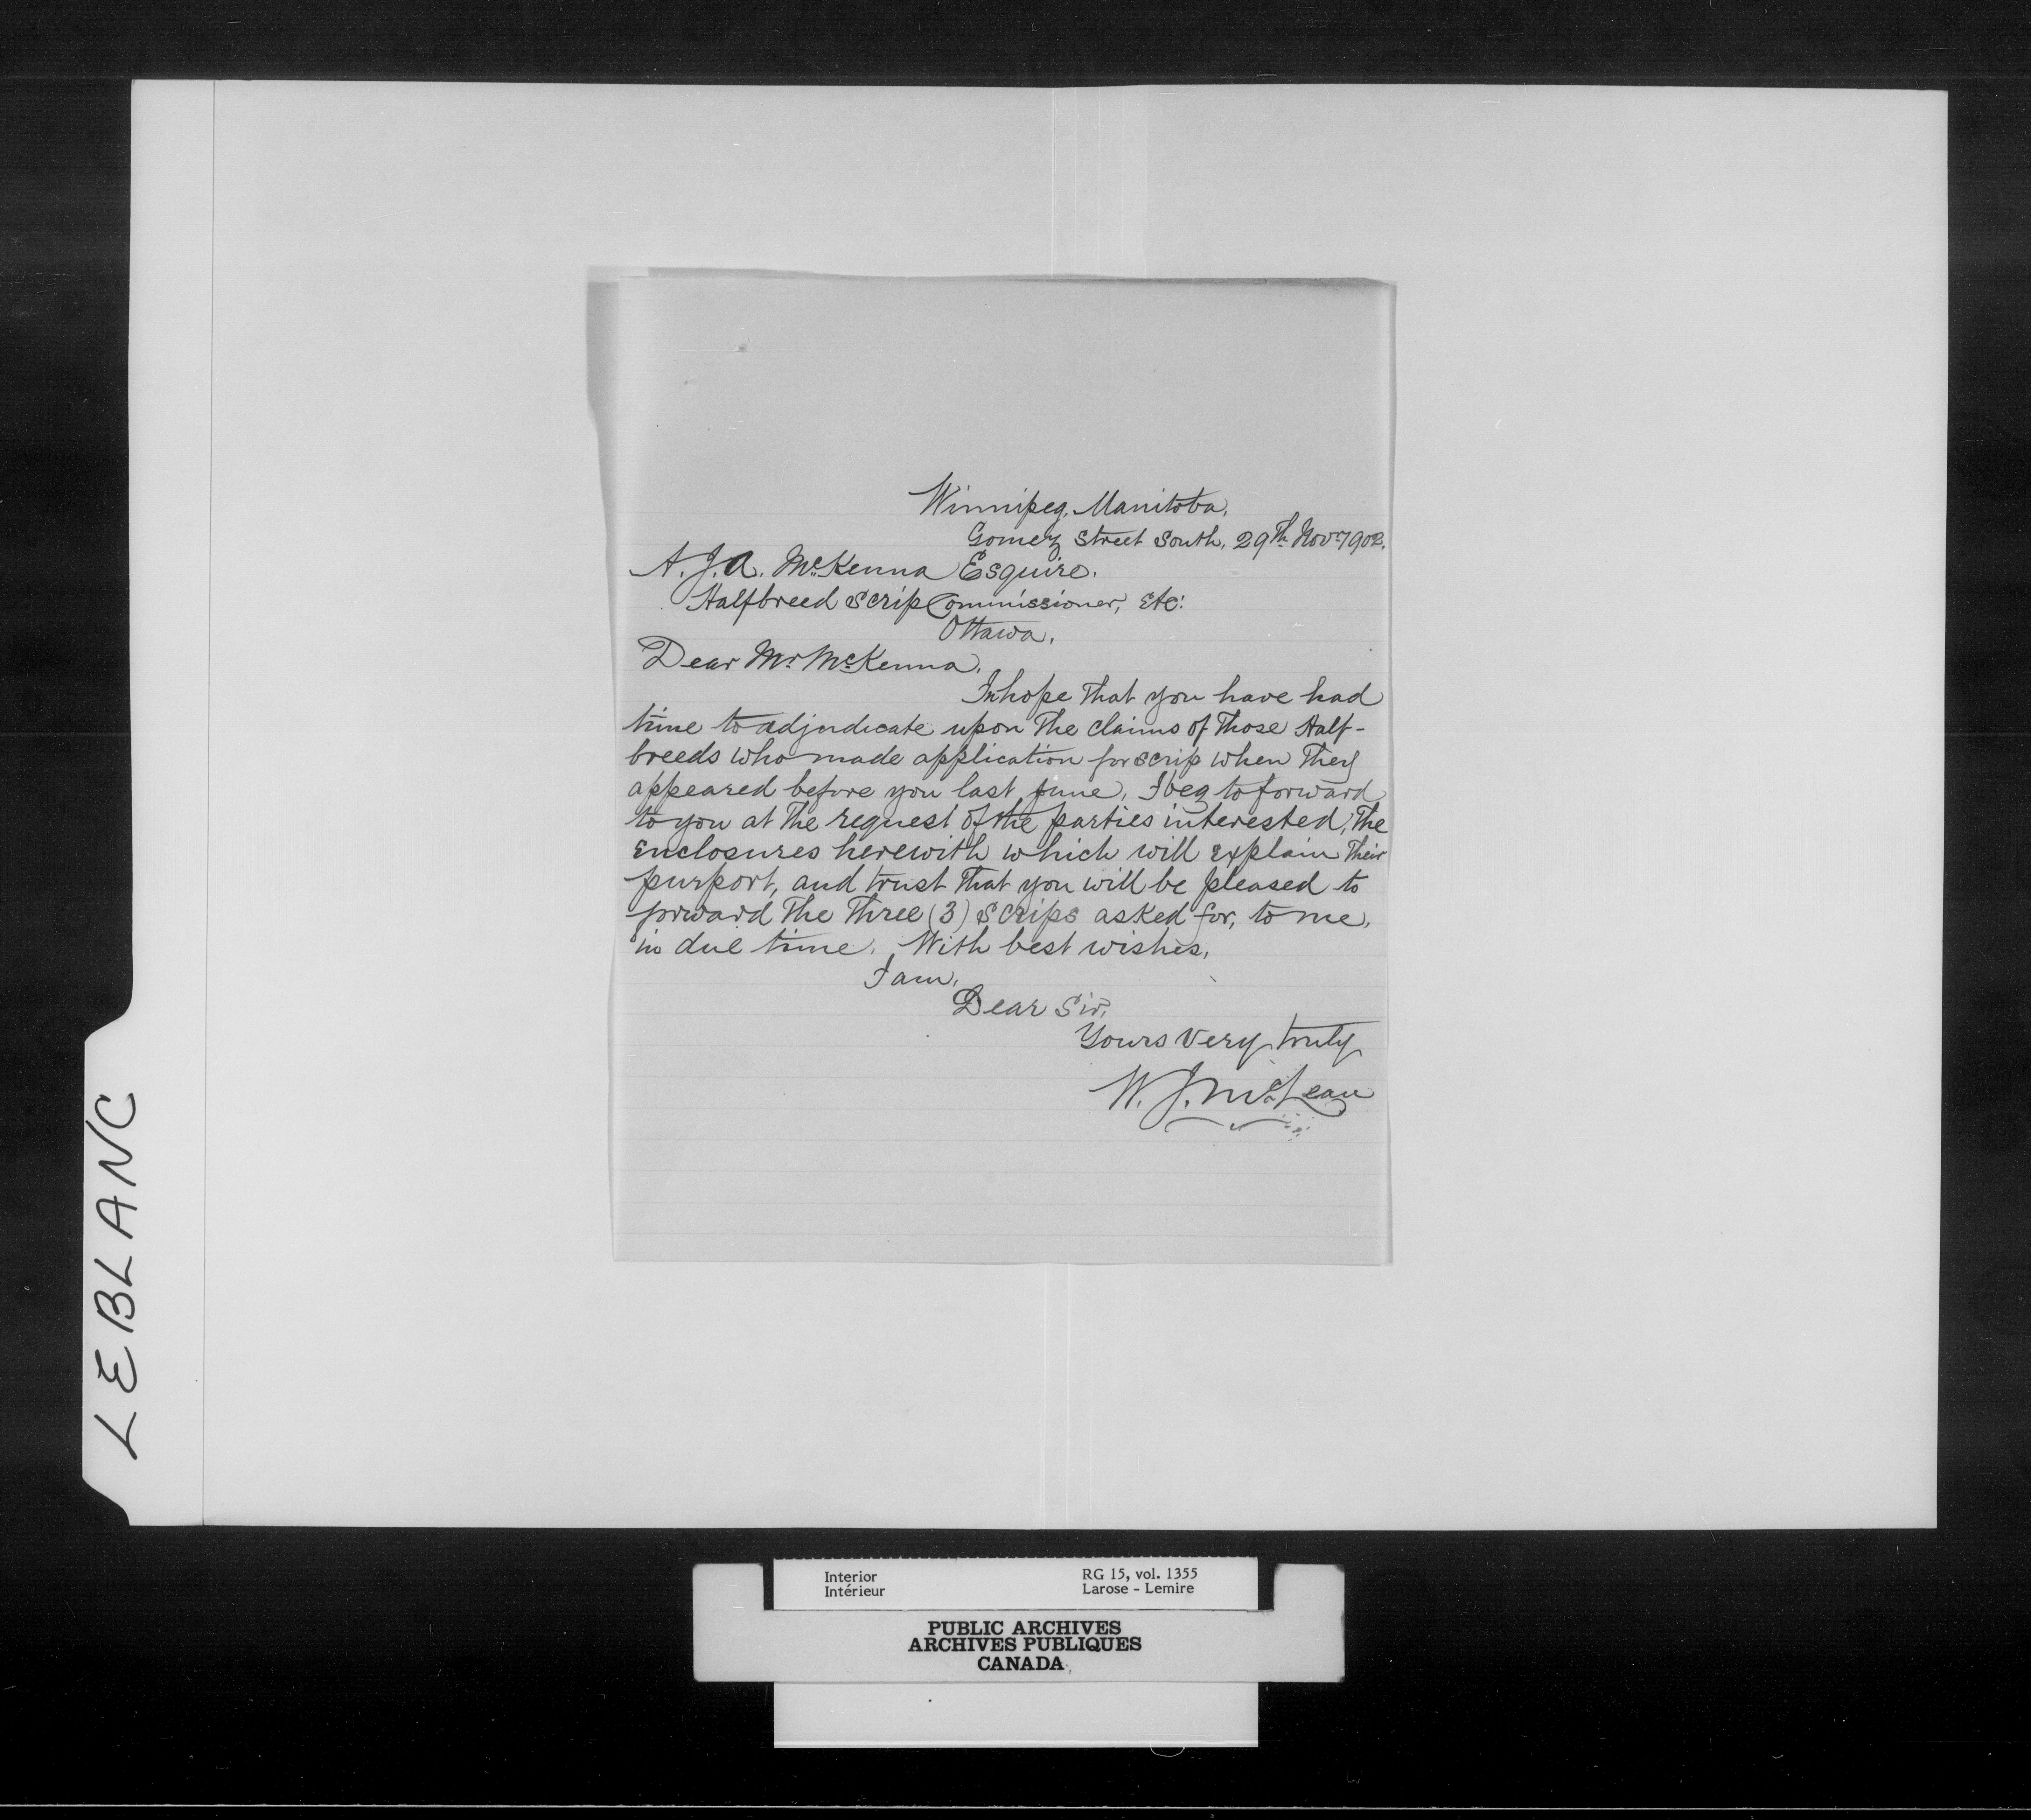 Winnipeg, Manitoba.
Gomez Street South, 29th Novr 1902.
A. J. A. McKenna Esquire.
Halfbreed Scrip Commissioner, Etc:
Ottawa.
Dear Mr. McKenna,
In hope that you have had
time to adjudicate upon the claims of those Half-
breeds who made application for scrip when they
appeared before you last June, I beg to forward
to you at the request of the parties interested, the
enclosures herewith which will explain their
purport, and trust that you will be pleased to
forward the three (3) scrips asked for, to me,
in due time. With best wishes,
I am,
Dear Sir,
Yours very truly
W. J. McLean
LEBLANC
Interior RG 15, vol. 1355
Intérieur Larose - Lemire
PUBLIC ARCHIVES
ARCHIVES PUBLIQUES
CANADA